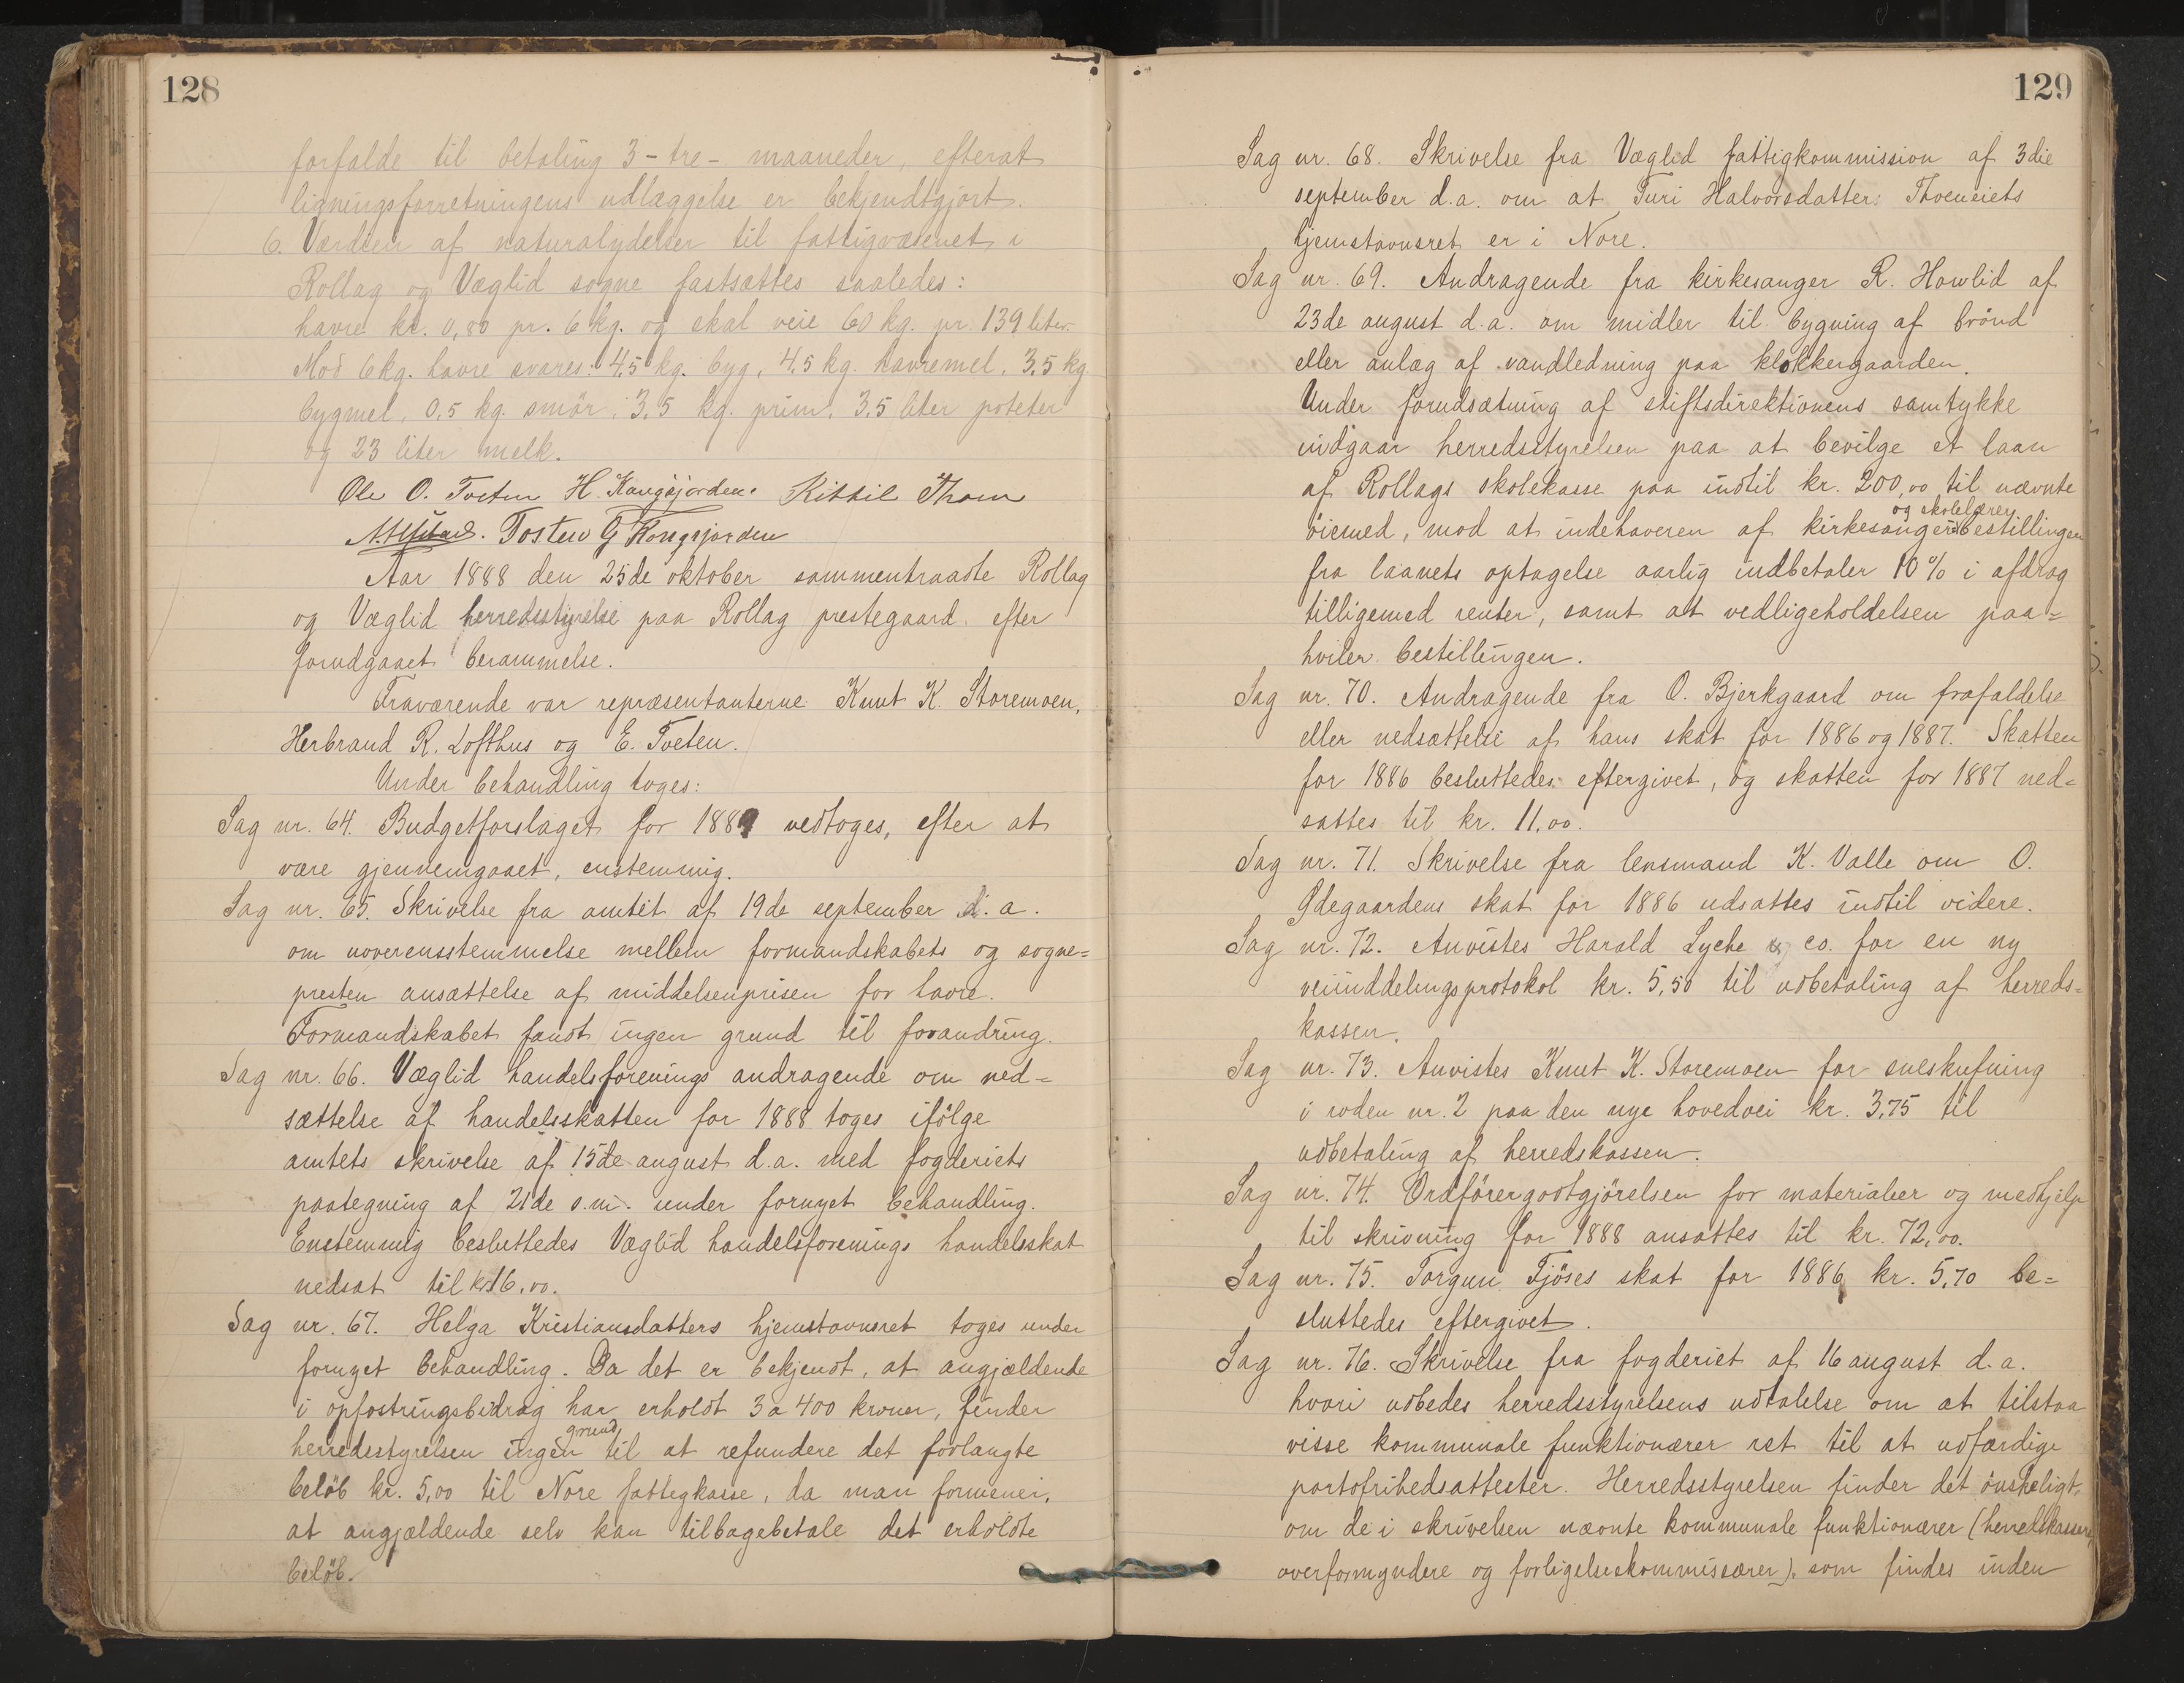 128
forfalde til betaling 3 - tre - maaneder, efterat
ligningsforretningens udlæggelse er bekjendtgjort.
6. Værdien af naturalydelser til fattigvæsenet i
Rollag og Væglid sogne fastsattes saaledes:
havre kr. 0,80 pr. 6 kg. og skal veie 60 kg. pr. 139 liter.
Mod 6 kg. havre svares: 4,5 kg. byg, 4,5 kg. havremel, 3,5 kg
bygmel, 0,5 kg. smör, 3,5 kg. prim, 3,5 liter poteter
og 23 liter melk.
Ole O. Tveten H. Kongsjorden. Kittil Thoen
Tosten G Kongsjorden
Aar 1888 den 25de oktober sammentraadte Rollag
og Væglid herredsstyrelse paa Rollag prestegaard efter
forudgaaet berammelse.
Fraværende var repræsentanterne Knut K. Storemoen,
Herbrand R. Lofthus og E. Tveten.
Under behandling toges:
Sag nr. 64. Budgetforslaget for 1889 vedtoges, efter at
være gjennemgaaet, enstemmig.
Sag nr. 65. Skrivelse fra amtet af 19de september d. a.
om uoverensstemmelse mellem formandskabets og sogne=
presten ansættelse af middelsenprisen for havre.
Formandskabet fandt ingen grund til forandring.
Sag nr. 66. Væglid handelsforenings andragende om ned=
sættelse af handelsskatten for 1888 toges ifölge
amtets skrivelse af 15de august d.a. med fogderiets
paategning af 21de s.m. under fornyet behandling.
Enstemmig besluttedes Væglid handelsforenings handelsskat
nedsat til kr 16,00.
Sag nr. 67. Helga Kristiansdatters hjemstavnsret toges under
fornyet behandling. Da det er bekjendt, at angjældende
i opfostringsbidrag har erholdt 3 a 400 kroner, finder
herredsstyrelsen ingen grund til at refundere det forlangte
belöb kr. 5,00 til Nore fattigkasse, da man formener,
at angjældende selv kan tilbagebetale det erholdte
belöb.
129
Sag nr. 68. Skrivelse fra Væglid fattigkommission af 3die
september d.a. om at Turi Halvorsdatter Thoeneiets
hjemstavnsret er i Nore.
Sag nr. 69. Andragende fra kirkesanger R. Howlid af
23de august d.a. om midler til bygning af brönd
eller anlæg af vandledning paa klokkergaarden.
Under forudsætning af stiftsdirektionens samtykke
indgaar herredsstyrelsen paa at bevilge et laan
af Rollags skolekasse paa indtil kr. 200,00 til nævnte
öiemed, mod at indehaveren af kirkesanger- og skolelærerbestillingen
fra laanets optagelse aarlig indbetaler 10% i afdrag
tilligemed renter, samt at vedligeholdelsen paa=
hviler bestillingen.
Sag nr. 70. Andragende fra O. Bjerkgaard om frafaldelse
eller nedsættelse af hans skat for 1886 og 1887. Skatten
for 1886 besluttedes eftergivet, og skatten for 1887 ned=
sattes til kr. 11,00.
Sag nr. 71. Skrivelse fra lensmand K. Valle om O.
Ødegaardens skat for 1886 udsattes indtil videre.
Sag nr. 72. Anvistes Harald Lyche & co. for en ny
veiinddelingsprotokol kr. 5,50 til udbetaling af herreds=
kassen.
Sag nr. 73. Anvistes Knut K. Storemoen for sneskufning
i roden nr. 2 paa den nye hovedvei kr. 3,75 til
udbetaling af herredskassen.
Sag nr. 74. Ordförergodtgjörelsen for materialier og medhjelp
til skrivning for 1888 ansattes til kr. 72,00.
Sag nr. 75. Torgun Fjöses skat for 1886 kr. 5,70 be=
sluttedes eftergivet.
Sag nr. 76. Skrivelse fra fogderiet af 16 august d.a.
hvori udbedes herredsstyrelsens udtalelse om at tilstaa
visse kommunale funktionærer ret til at udfærdige
portofrihedsattester. Herredsstyrelsen finder det önskeligt,
om de i skrivelsen nævnte kommunale funktionærer (herredskasserer,
overformyndere og forligelseskommissærer), som findes inden